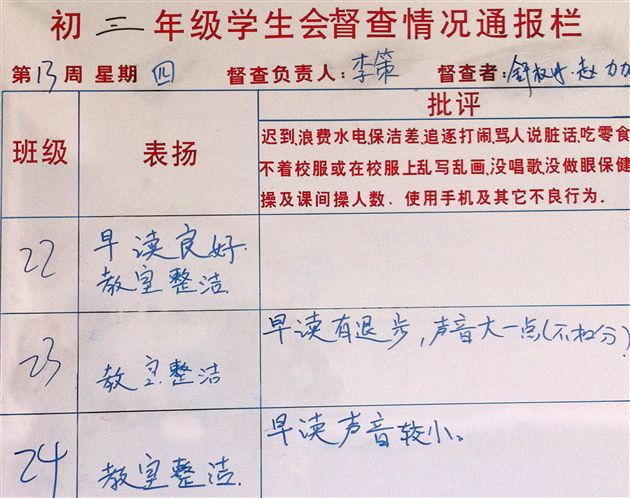 初三年级学生会督查情况通报栏
第13周 星期四 督查负责人:李策 督查者:舒权 赵力
班级
表扬
批评
迟到,浪费水电保洁差,追逐打闹,骂人说脏话,吃零食
不着校服或在校服上乱写乱画,没唱歌,没做眼保健
操及课间操人数、使用手机及其它不良行为.
22
早读良好.
教室整洁.
23
教室整洁
早读有退步,声音大一点(不扣分)
24
教室整洁.
早读声音较小。